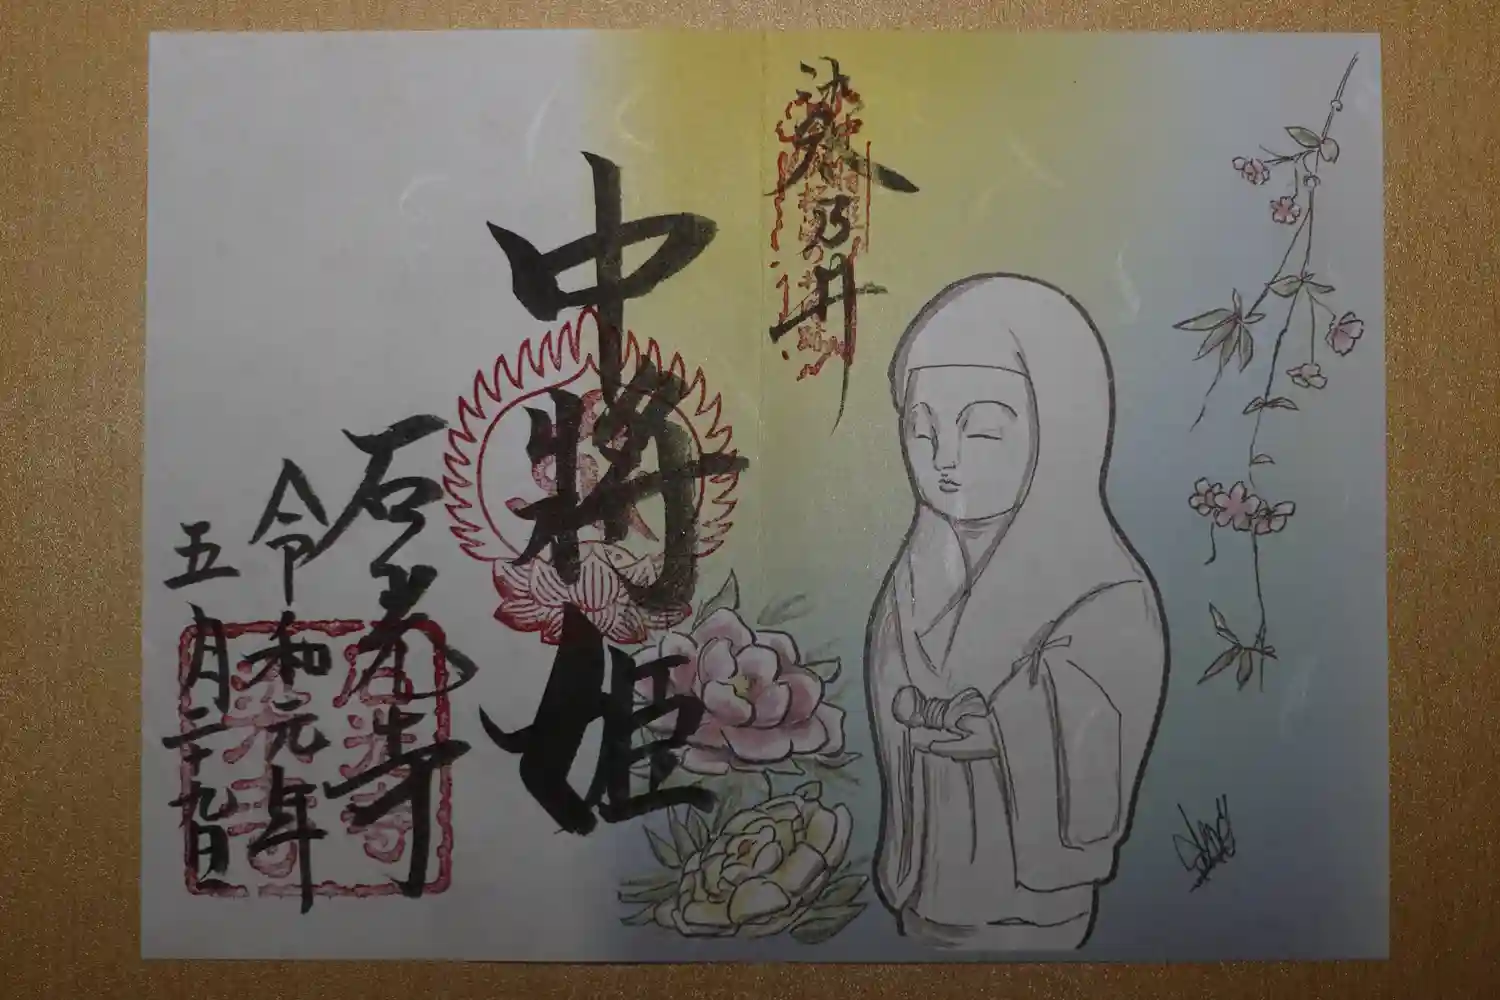 染乃井
中将姫
石光寺
令和元年
五月二十九日